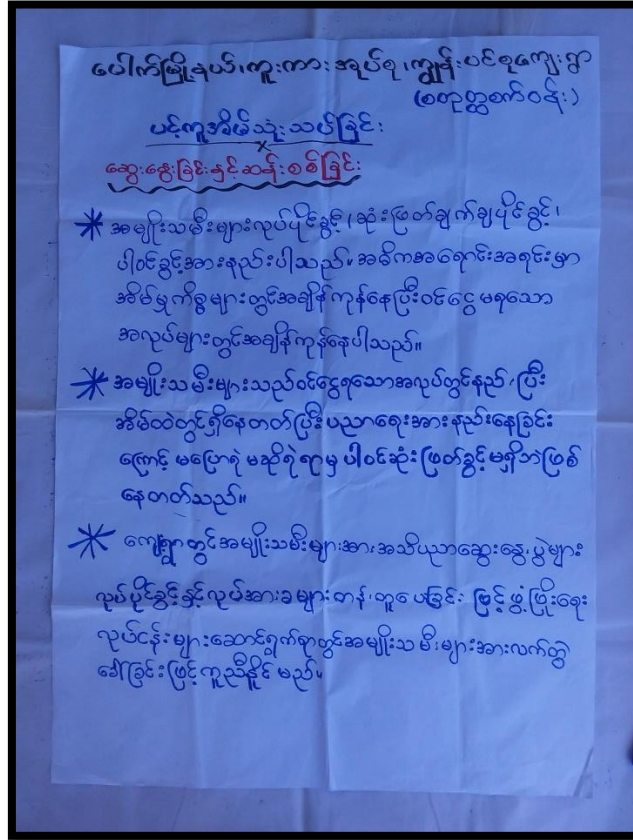 ပေါက်မြို့နယ်၊ကူးကားအုပ်စု၊ကျွန်းပင်စုကျေးရွာ
(စတုတ္ထစက်ဝန်း)
ပင့်ကူအိမ်သုံးသပ်ခြင်း
ဆွေးနွေးခြင်းနှင့်ဆန်းစစ်ခြင်း
* အမျိုးသမီးများလုပ်ပိုင်ခွင့်၊ဆုံးဖြတ်ချက်ချပိုင်ခွင့်၊
ပါဝင်ခွင့်အားနည်းပါသည်။အဓိကအရောင်းအရင်းမှာ
အိမ်မှုကိစ္စများတွင်အချိန်ကုန်နေပြီးဝင်ငွေမရသော
အလုပ်များတွင်အချိန်ကုန်နေပါသည်။
* အမျိုးသမီးများသည်ဝင်ငွေရသောအလုပ်တွင်နည်းပြီး
အိမ်ထဲတွင်ရှိနေတတ်ပြီးပညာရေးအားနည်းနေခြင်း
ကြောင့် မပြောရဲ မဆိုရဲရာမှ ပါဝင်ဆုံးဖြတ်ခွင့်မရှိဘဲဖြစ်
နေတတ်သည်။
* ကျေးရွာတွင်အမျိုးသမီးများအားအသိပညာဆွေးနွေးပွဲများ
လုပ်ပိုင်ခွင့်နှင့်လုပ်အားခများတန်းတူပေးခြင်း ဖြင့်ဖွံ့ဖြိုးရေး
လုပ်ငန်းများဆောင်ရွက်ရာတွင်အမျိုးသမီးများအားလက်တွဲ
ခေါ်ခြင်းဖြင့်ကူညီနိုင်မည်။